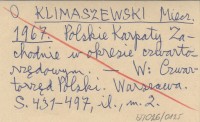 O KLIMASZEWSKI Miecz.
1967. Polskie Karpaty Za-
chodnie w okresie czwarto-
rzędowym. — W: Czwar-
torzęd Polski. Warszawa.
S. 431-497, il., m. 2.